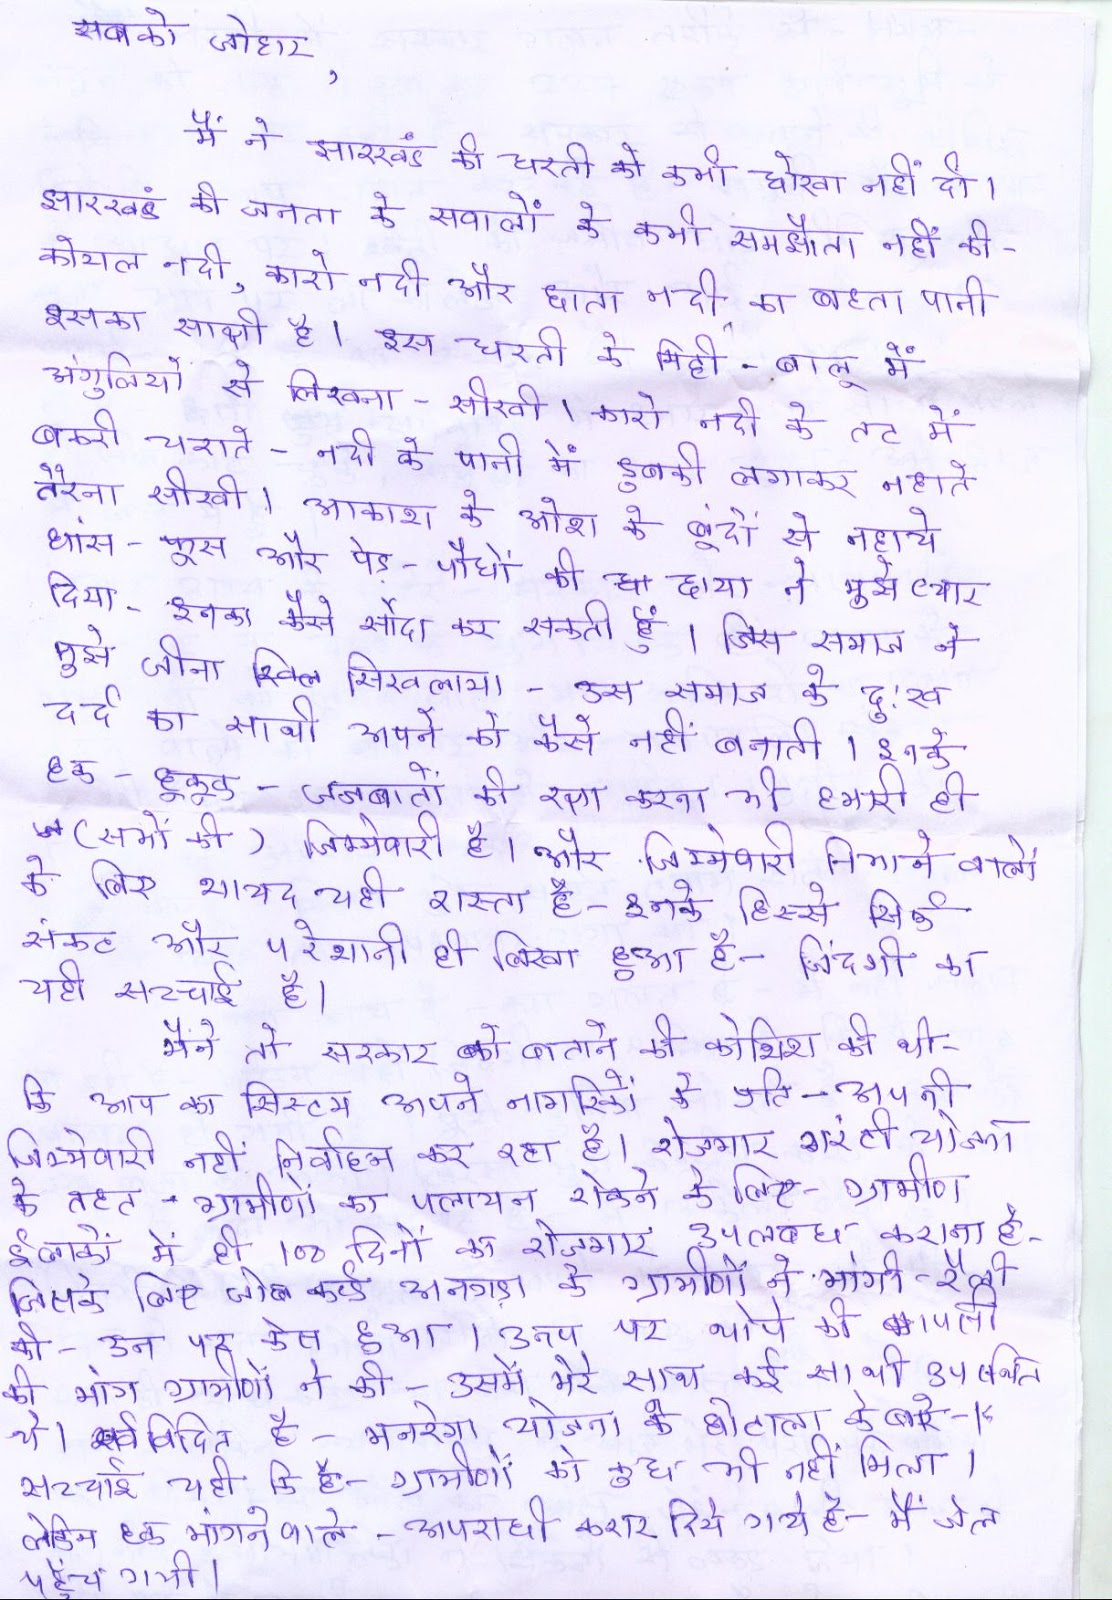 सबको जोहार,
मैं ने झारखंड की धरती को कभी धोखा नहीं दी।
झारखंड की जनता के सवालों के कभी समझौता नहीं की-
कोयल नदी, कारो नदी और छाता नदी का बहता पानी
इसका साक्षी है। इस धरती के मिट्टी - बालू में
अंगुलियों से लिखना - सीखी। कारो नदी के तट में
बकरी चराते - नदी के पानी में डुबकी लगाकर नहाते
तैरना सीखी। आकाश के ओश के बूंदों से नहाये
घांस - फूस और पेड़ - पौधों की छाया ने मुझे प्यार
दिया - इनका कैसे सौदा कर सकती हुं। जिस समाज ने
मुझे जीना सिखलाया - उस समाज के दुःख
दर्द का साथी अपने को कैसे नहीं बनाती। इनके
हक - हुकूक - जजबातों की रक्षा करना भी हमारी ही
(सभों की) जिम्मेवारी है। और जिम्मेवारी निभाने वालों
के लिए शायद यही रास्ता है - इनके हिस्से सिर्फ
संकट और परेशानी ही लिखा हुआ है - जिंदगी का
यही सच्चाई है।
मैंने तो सरकार को बताने की कोशिश की थी-
कि आप का सिस्टम अपने नागरिकों के प्रति - अपनी
जिम्मेवारी नहीं निर्वाहन कर रहा है। रोजगार गरंटी योजना
के तहत - ग्रामीणों का पलायन रोकने के लिए - ग्रामीण
ईलाकों में ही 100 दिनों का रोजगार उपलबध कराना है-
जिसके लिए जोब कार्ड अनगड़ा के ग्रामीणों ने मांगी - रैली
की - उन पर केस हुआ। उन पर थोपे केस वापसी
की मांग ग्रामीणों ने की - उसमें मेरे साथ कई साथी उपस्थित
थे। सर्वविदित है - मनरेगा योजना के घोटाला के बारे -
सच्चाई यही कि है - ग्रामीणों को कुछ भी नहीं मिला।
लेकिन हक मांगने वाले - अपराधी करार दिये गये हैं - मैं जेल
पहुँच गयी।